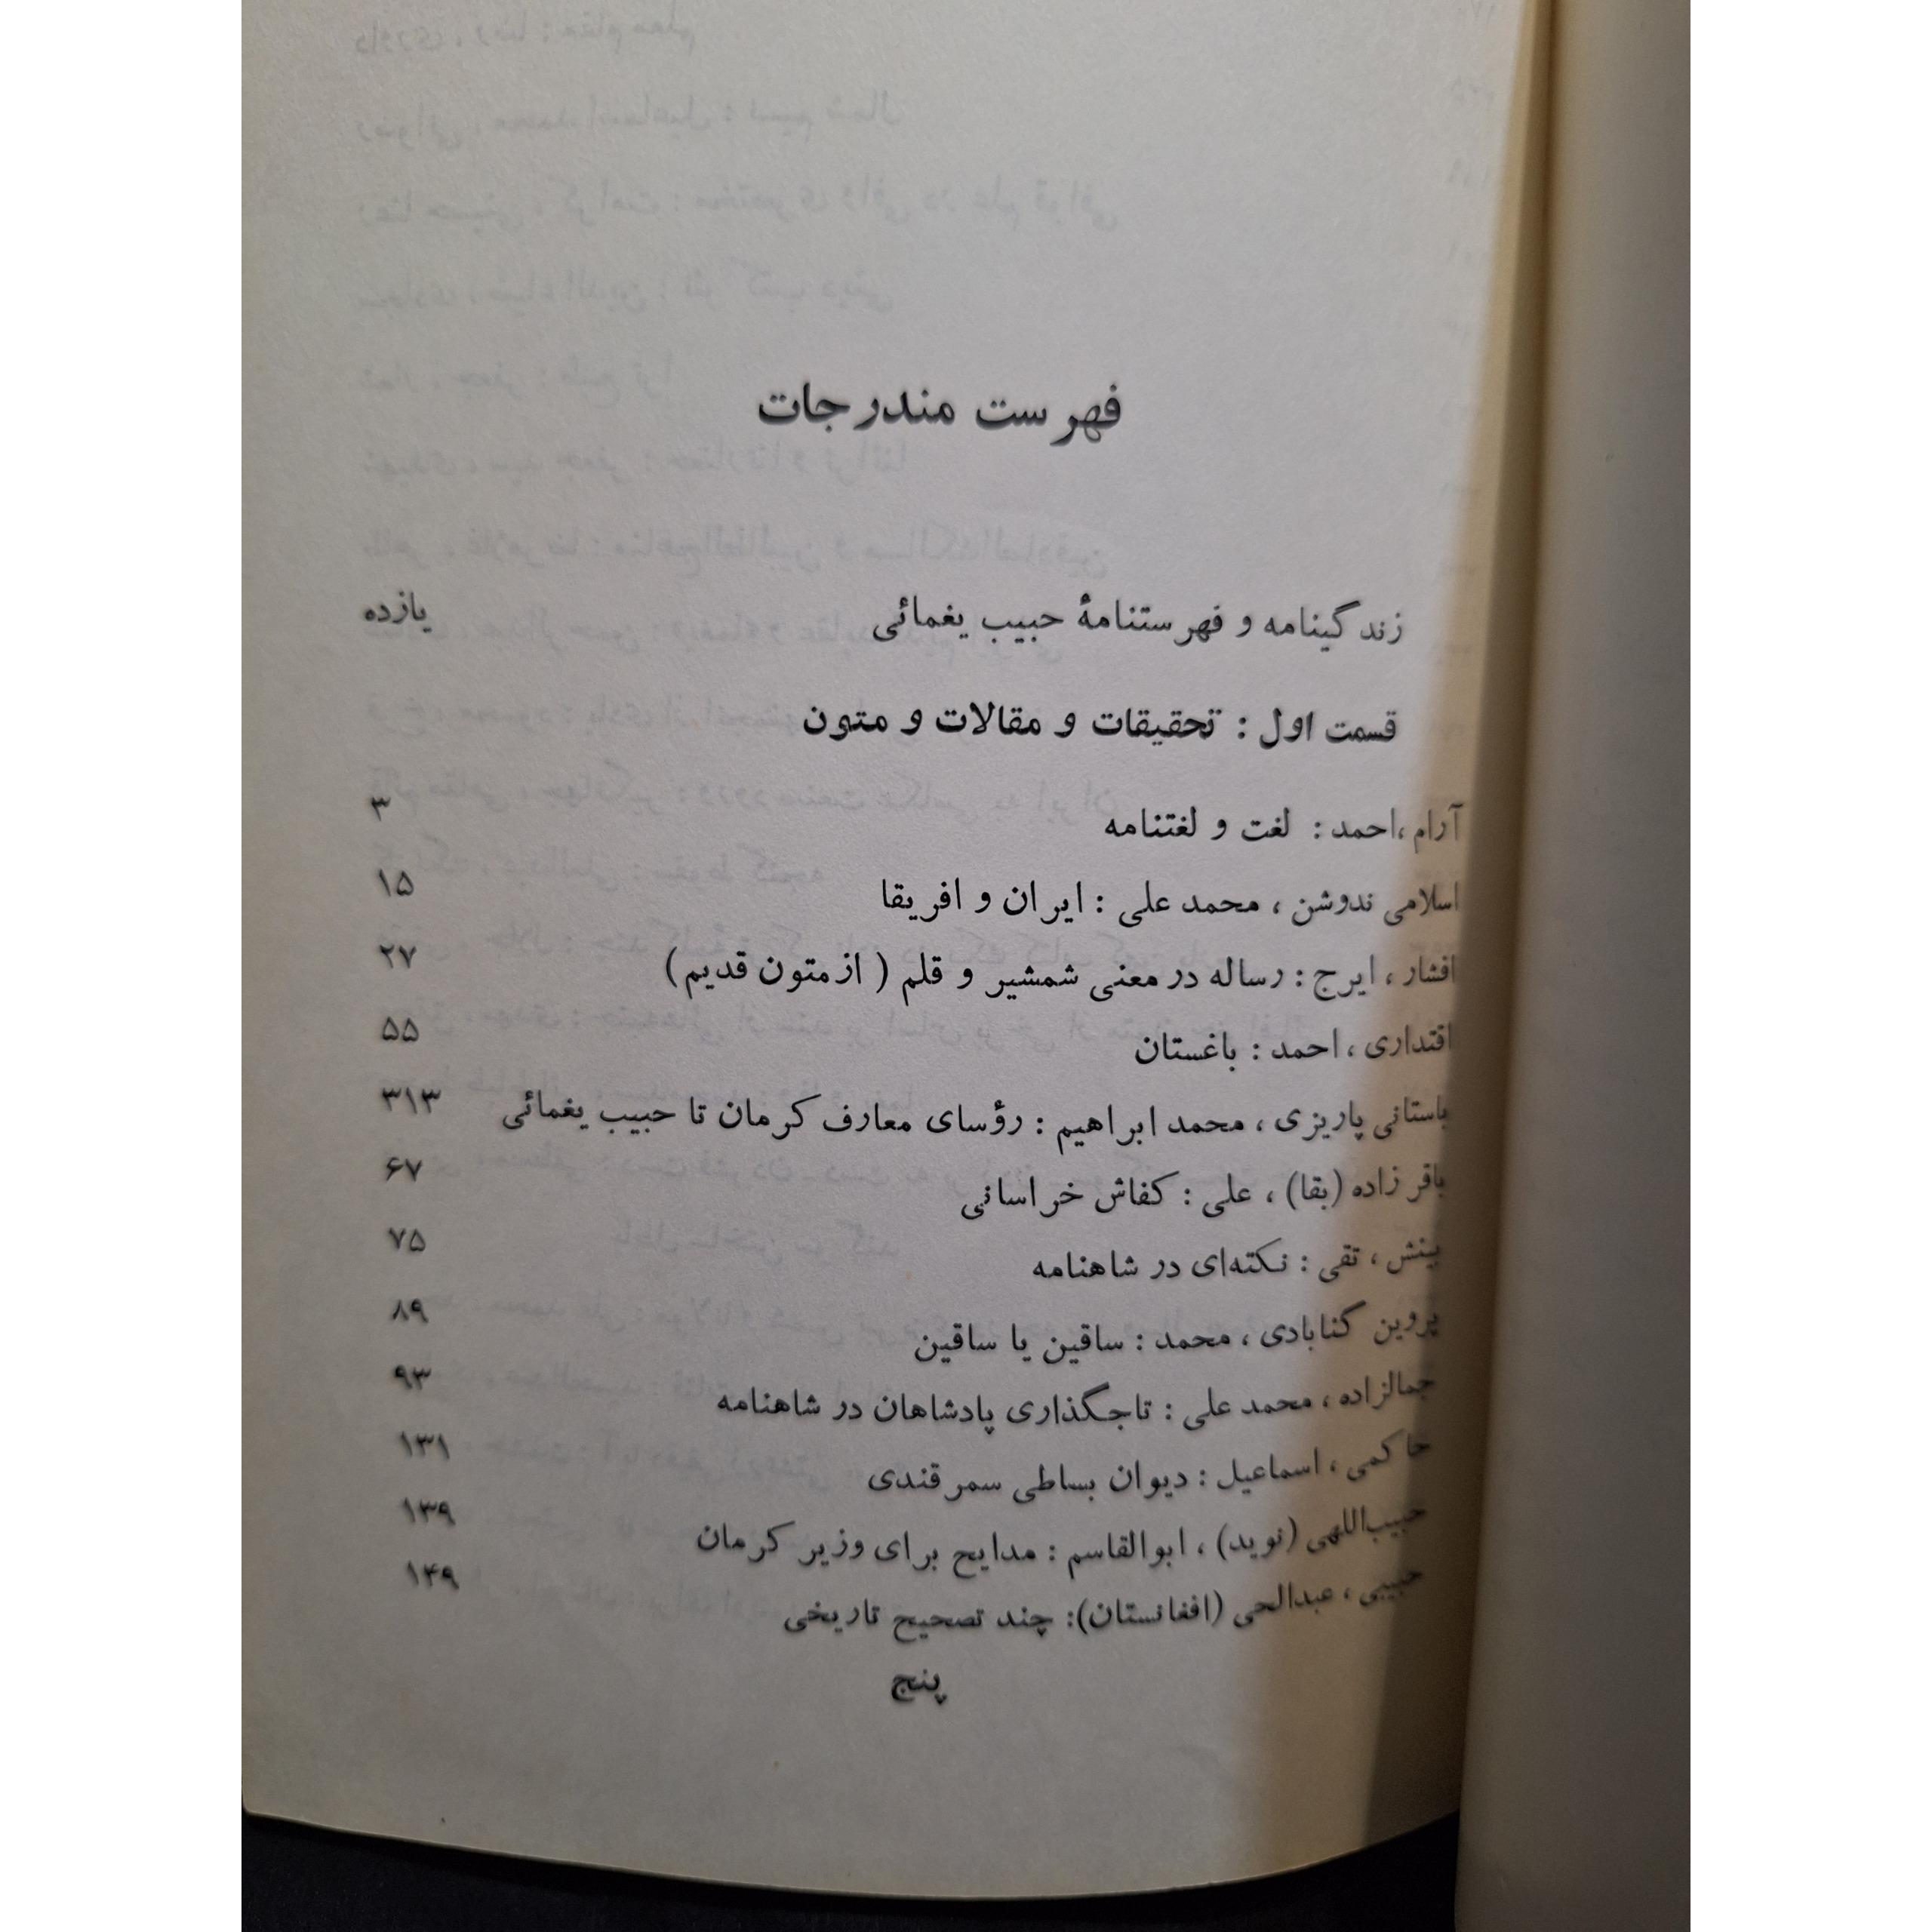 فهرست مندرجات
زندگینامه و فهرستنامهٔ حبیب یغمائی یازده
قسمت اول : تحقیقات و مقالات و متون
آرام ،احمد : لغت و لغتنامه ۳
اسلامی ندوشن ، محمد علی : ایران و افریقا ۱۵
افشار ، ایرج : رساله در معنی شمشیر و قلم ( از متون قدیم ) ۲۷
اقتداری ، احمد : باغستان ۵۵
باستانی پاریزی ، محمد ابراهیم : رؤسای معارف کرمان تا حبیب یغمائی ۳۱۳
باقر زاده (بقا) ، علی : کفاش خراسانی ۶۷
بینش ، تقی : نکته‌ای در شاهنامه ۷۵
پروین گنابادی ، محمد : ساقین یا ساقین ۸۹
جمالزاده ، محمد علی : تاجگذاری پادشاهان در شاهنامه ۹۳
حاکمی ، اسماعیل : دیوان بساطی سمرقندی ۱۳۱
حبیب‌اللهی (نوید) ، ابوالقاسم : مدایح برای وزیر کرمان ۱۳۹
حبیبی ، عبدالحی (افغانستان): چند تصحیح تاریخی ۱۴۹
پنج